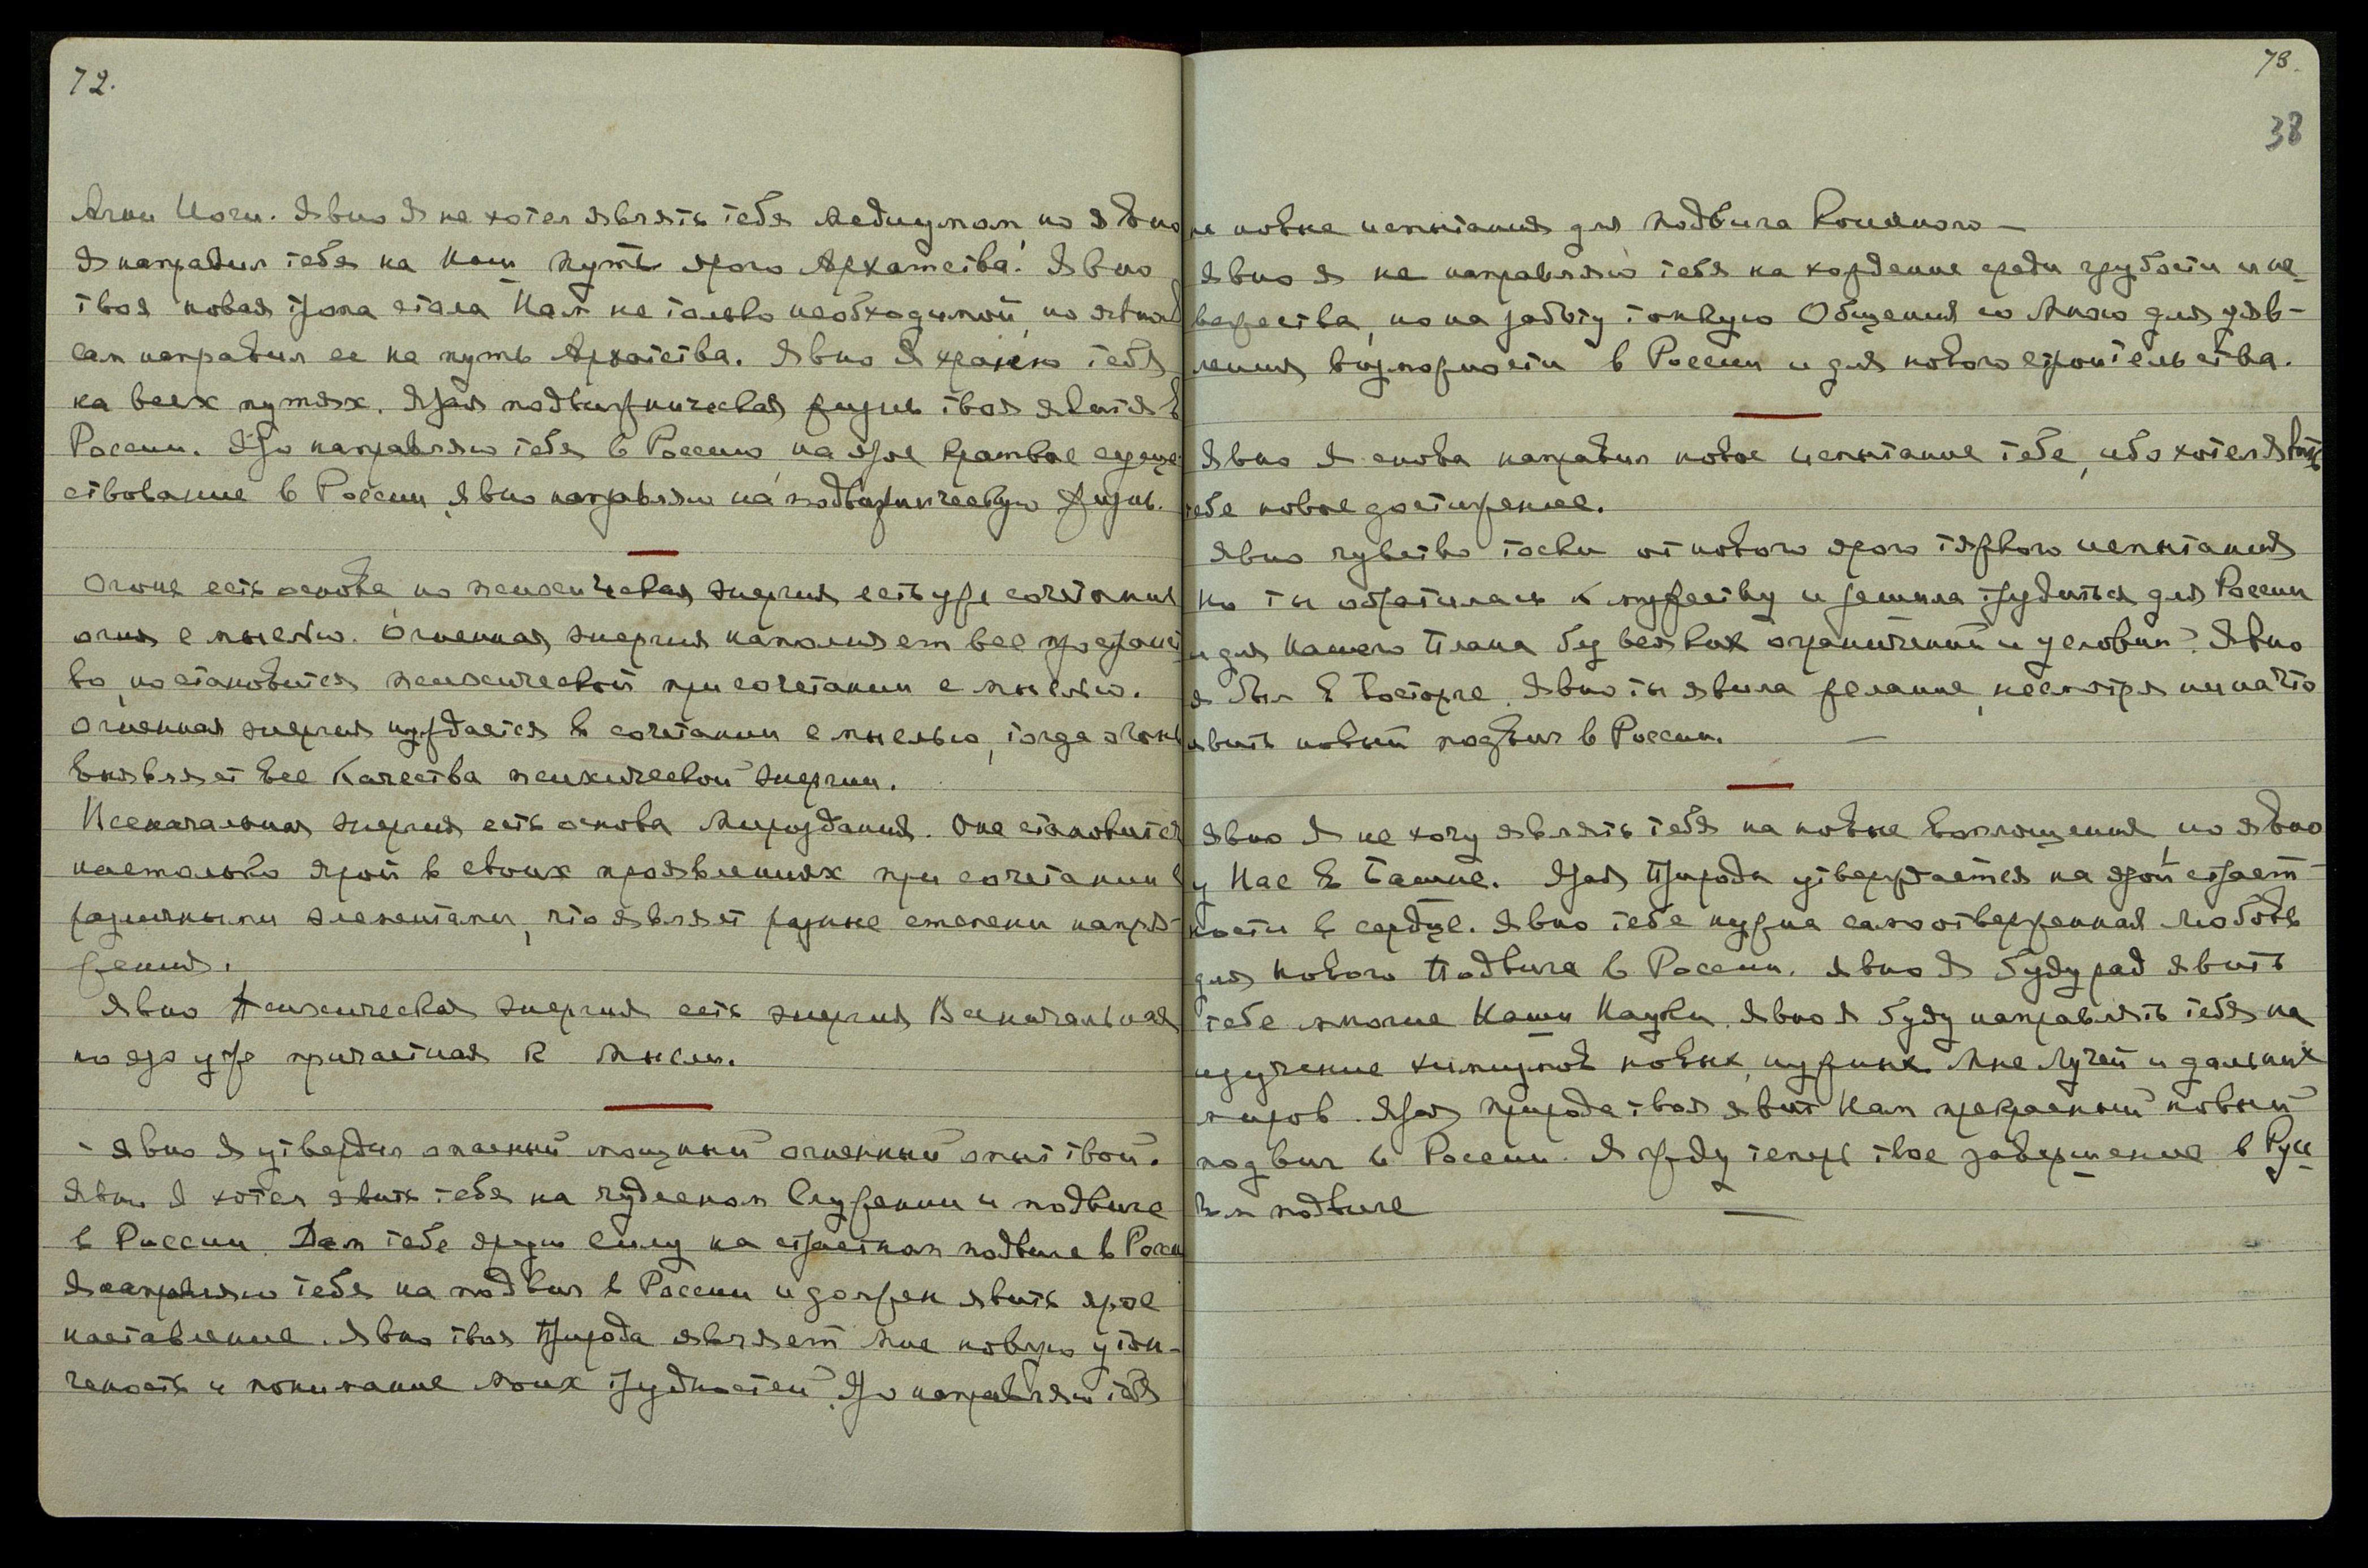 72.
Агни Йоги. Явно Я не хотел являть тебя медиумом, но явно
Я направил тебя на Наш путь ярого Архатства. Явно
твоя новая тропа стала Нам не только необходимой, но явно Я
сам направил ее на путь Архатства. Явно Я храню тебя
на всех путях. Ярая подвижническая жизнь твоя явится в
России. Яро направляю тебя в Россию, на ярое краткое суще-
ствование в России, явно направляю на подвижническую жизнь.
Огонь есть основа, но психическая энергия есть уже сочетание
огня с мыслью. Огненная энергия наполняет все пространст
во, но становится психической при сочетании с мыслью.
Огненная энергия нуждается в сочетании с мыслью, тогда огонь
выявляет все качества психической энергии.
Всеначальная энергия есть основа Мироздания. Она становится
настолько ярой в своих проявлениях при сочетании с
различными элементами, что являет разные степени напря-
жения.
Явно Психическая энергия есть энергия Всеначальная
но яро уже причастная к Мысли.
- Явно Я утвердил опасный мощный огненный опыт твой.
Явно Я хотел явить тебя на чудесном служении и подвиге
в России. Дам тебе ярую силу на страстном подвиге в России
Я направляю тебя на подвиг в России и должен явить ярое
наставление. Явно твоя Природа являет Мне новую утон-
ченность и понимание Моих трудностей. Яро направляю тебя
73.
38
на новые испытания для подвига Конечного —
Явно Я не направляю тебя на хождение среди грубости и не-
вежества, но на работу тонкую Общения со Мною для уяв-
ления возможности в России и для нового строительства.
Явно Я снова направил новое испытание тебе, ибо хотел явить
тебе новое достижение.
Явно чувство тоски от нового ярого тяжкого испытания
Но ты обратилась к мужеству и решила трудиться для России
и для Нашего Плана без всяких ограничений и условий. Явно
Я был в восторге. Явно ты явила желание, несмотря ни на что
явить новый подвиг в России. —
Явно Я не хочу являть тебя на новые воплощения, но явно
у Нас в Башне. Ярая Природа утверждается на ярой страст-
ности в сердце. Явно тебе нужна самоотверженная любовь
для Нового Подвига в России. Явно Я буду рад явить
тебе многие Наши Науки. Явно Я буду направлять тебя на
изучение химизмов новых, нужных Мне Лучей и дальних
миров. Ярая природа твоя явит Нам прекрасный новый
подвиг в России. Я жду теперь твое завершение в Рус-
ском подвиге —